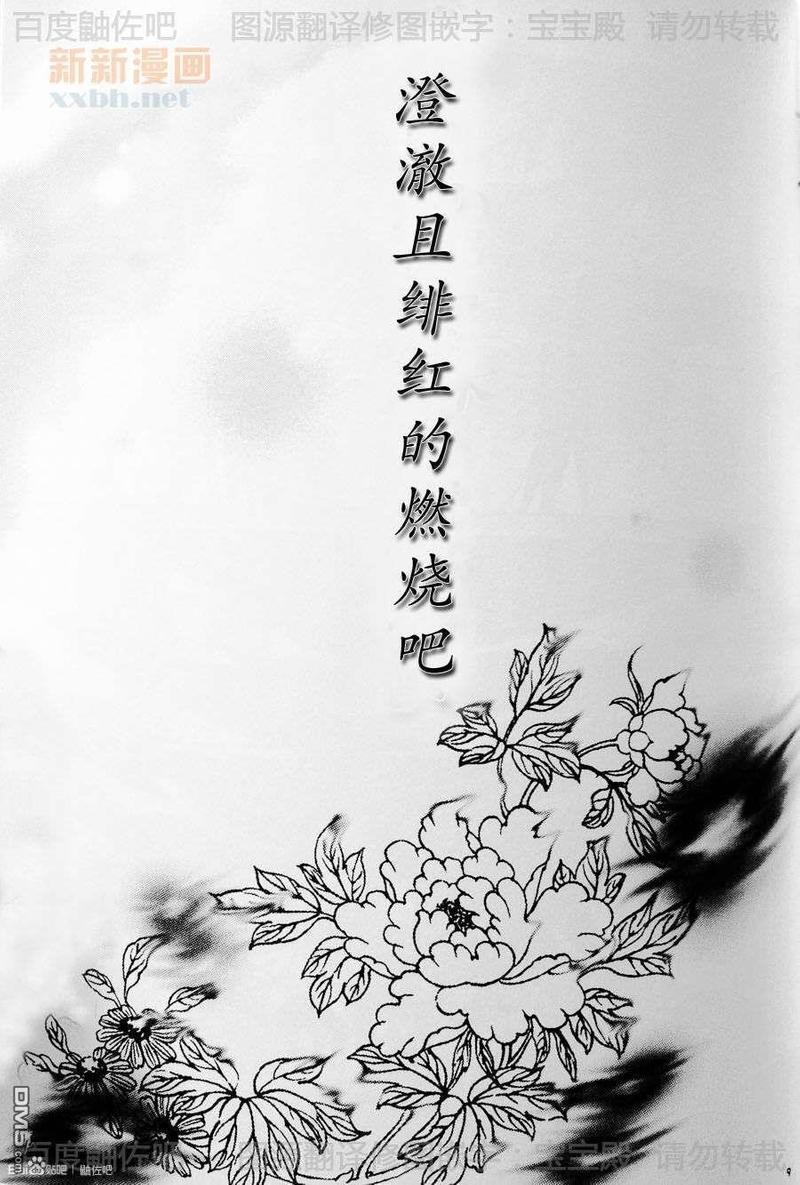 百度鼬佐吧 图源翻译修图嵌字：宝宝殿 请勿转载
新新漫画
xxbh.net
澄澈且绯红的燃烧吧
DM5.com
百度鼬佐吧 图源翻译修图嵌字：宝宝殿 请勿转载
贴吧 | 鼬佐吧
9